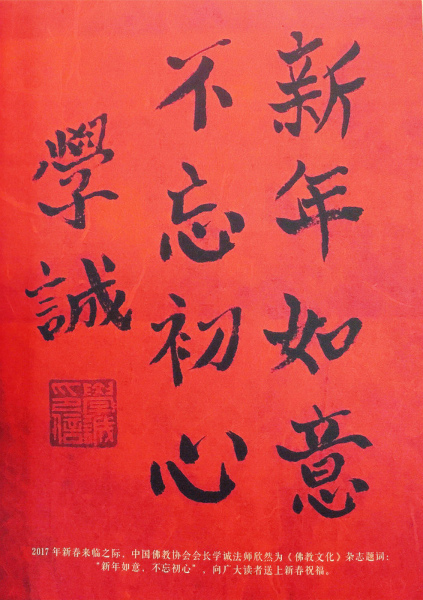 新年如意
不忘初心
學誠
學誠印信
2017年新春来临之际，中国佛教协会会长学诚法师欣然为《佛教文化》杂志题词：
“新年如意，不忘初心”，向广大读者送上新春祝福。